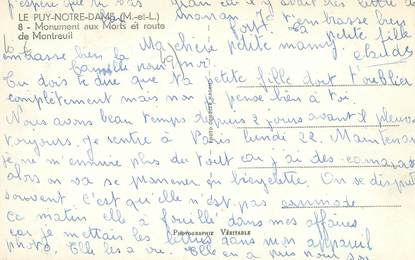 j'espère que tu n'as pas
LE PUY-NOTRE-DAME (M.-et-L.)
8 - Monument aux Morts et route
de Montreuil
maman
t'embrasse bien
fort. Ta
petite fille
Ma chère petite mamy.
embrasse bien la
famille pour moi
Tu dois te dire que ta petite fille doit t'oublier
complètement mais non je pense bien à toi.
Nous avons beau temps depuis 2 jours avant il pleuvait
toujours. Je rentre à Paris lundi 22. Maintenant
je ne m'ennuie plus du tout car j'ai des camarades
alors on va se promener en bicyclette. On se dispute
souvent. C'est qu'elle n'est pas commode
ce matin elle a fouillé dans mes affaires
car je mettais les lettres dans mon appareil
photo. Elle les a vu. Elle en a
PHOTOGRAPHIE VÉRITABLE